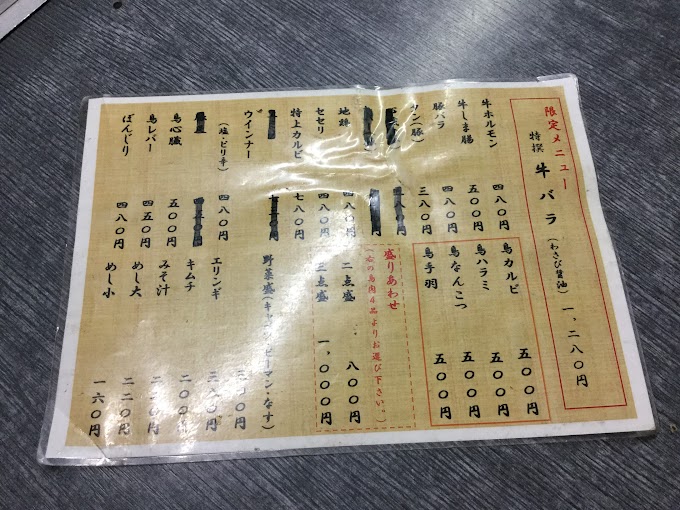 限定メニュー
特撰 牛バラ (わさび醤油) 一、二八〇円
牛ホルモン 四八〇円
牛しま腸 五〇〇円
豚バラ 四八〇円
タン(豚) 三八〇円
地鶏 四八〇円
セセリ 四八〇円
特上カルビ 七八〇円
ウインナー
(塩・ピリ辛) 四八〇円
鳥心臓 五〇〇円
鳥レバー 四五〇円
ぼんじり 四八〇円
鳥カルビ 五〇〇円
鳥ハラミ 五〇〇円
鳥なんこつ 五〇〇円
鳥手羽 五〇〇円
盛りあわせ
(右の鳥肉4品よりお選び下さい。)
二点盛 八〇〇円
三点盛 一、〇〇〇円
野菜盛(キャベツ・ピーマン・なす)
エリンギ
キムチ
みそ汁
めし大 二二〇円
めし小 一六〇円